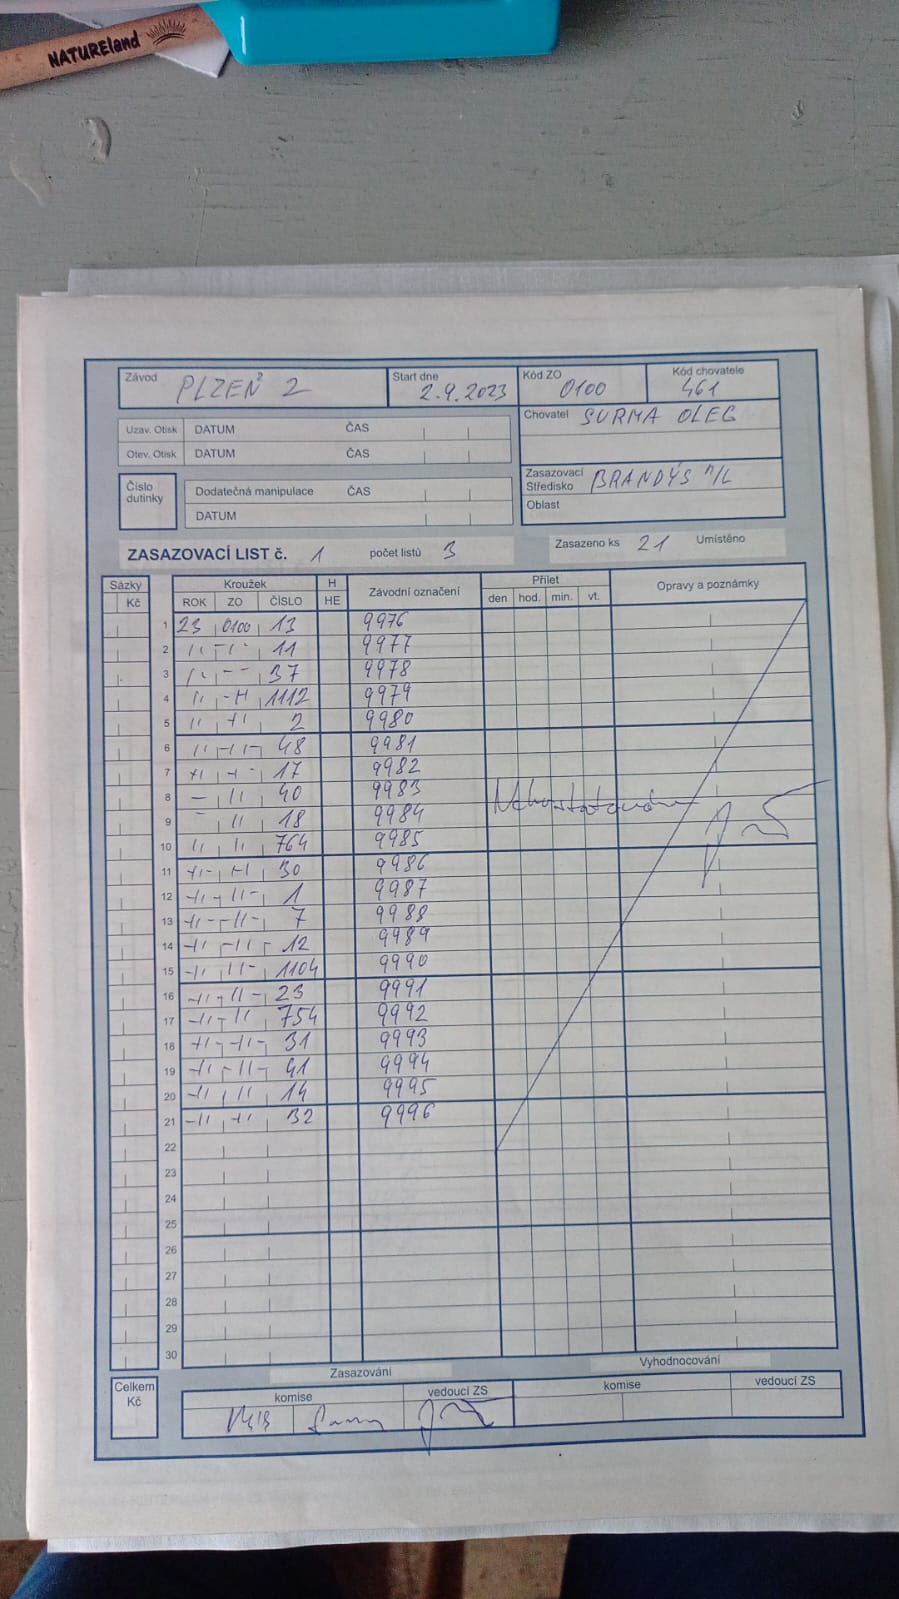 NATUREland
Závod PLZEŇ 2 Start dne 2.9.2023 Kód ZO 0100 Kód chovatele 461
Uzav. Otisk DATUM ČAS Chovatel SURMA OLEG
Otev. Otisk DATUM ČAS
Číslo dutinky Dodatečná manipulace ČAS Zasazovací Středisko BRANDÝS n/L
DATUM Oblast
ZASAZOVACÍ LIST č. 1 počet listů 3 Zasazeno ks 21 Umístěno
Sázky Kroužek H Závodní označení Přílet Opravy a poznámky
Kč ROK ZO ČÍSLO HE den hod. min. vt.
1 23 0100 13 9976
2 11 9977
3 37 9978
4 1112 9979
5 2 9980
6 48 9981
7 17 9982
8 40 9983
9 18 9984
10 764 9985
11 30 9986
12 1 9987
13 7 9988
14 12 9989
15 1104 9990
16 23 9991
17 754 9992
18 31 9993
19 41 9994
20 14 9995
21 32 9996
22
23
24
25
26
27
28
29
30
Zasazování Vyhodnocování
Celkem Kč komise vedoucí ZS komise vedoucí ZS